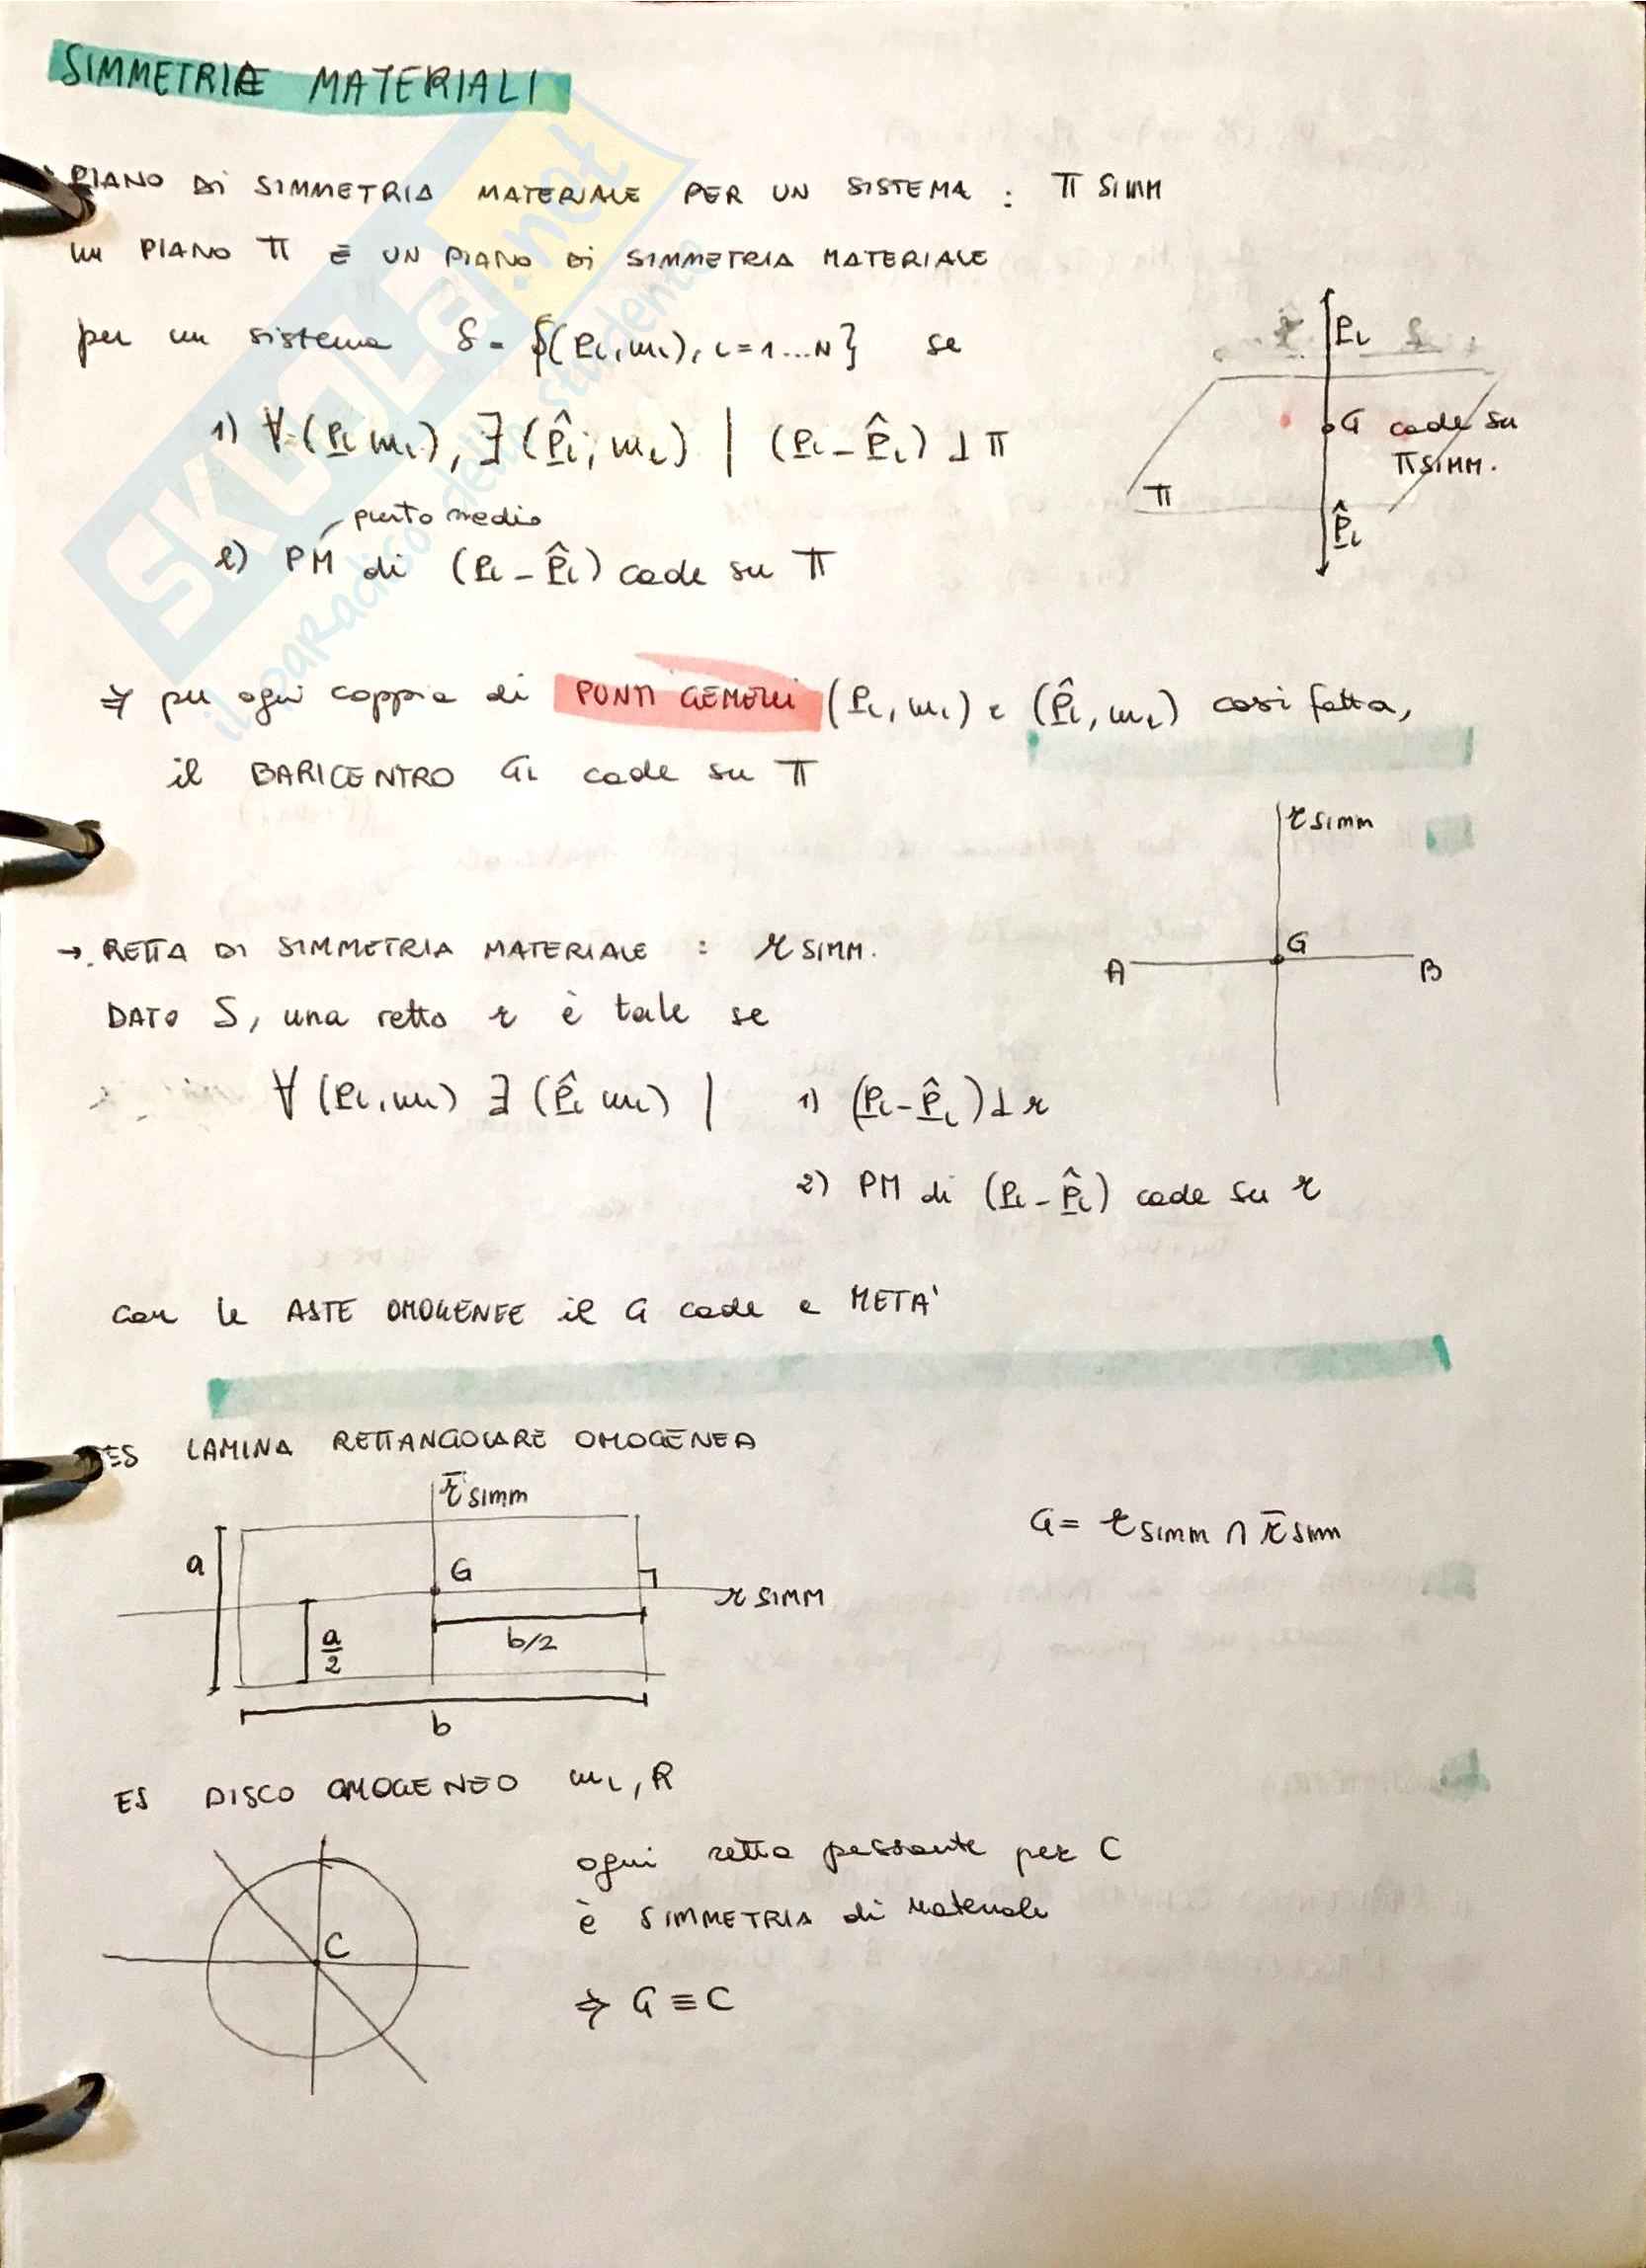 SIMMETRIE MATERIALI
PIANO DI SIMMETRIA MATERIALE PER UN SISTEMA : π SIMM
un PIANO π È UN PIANO DI SIMMETRIA MATERIALE
per un sistema S = {(Pi, mi), i = 1...N} se
1) ∀ (Pi mi), ∃ (P̂i, mi) | (Pi - P̂i) ⊥ π
punto medio
2) PM di (Pi - P̂i) cade su π
Pi
G cade su
π SIMM.
π
P̂i
⇒ per ogni coppia di PUNTI GEMELLI (Pi, mi) e (P̂i, mi) così fatta,
il BARICENTRO Gi cade su π
r SIMM
G
A B
→ RETTA DI SIMMETRIA MATERIALE : r SIMM.
DATO S, una retta r è tale se
∀ (Pi, mi) ∃ (P̂i mi) | 1) (Pi - P̂i) ⊥ r
2) PM di (Pi - P̂i) cade su r
con le ASTE OMOGENEE il G cade a META'
ES LAMINA RETTANGOLARE OMOGENEA
r̄ SIMM
G = r SIMM ∩ r̄ SIMM
a
G
r SIMM
a/2
b/2
b
ES DISCO OMOGENEO mi, R
ogni retta passante per C
è SIMMETRIA di Materiale
C
⇒ G ≡ C
SKUOLa.net
il paradiso dello studente